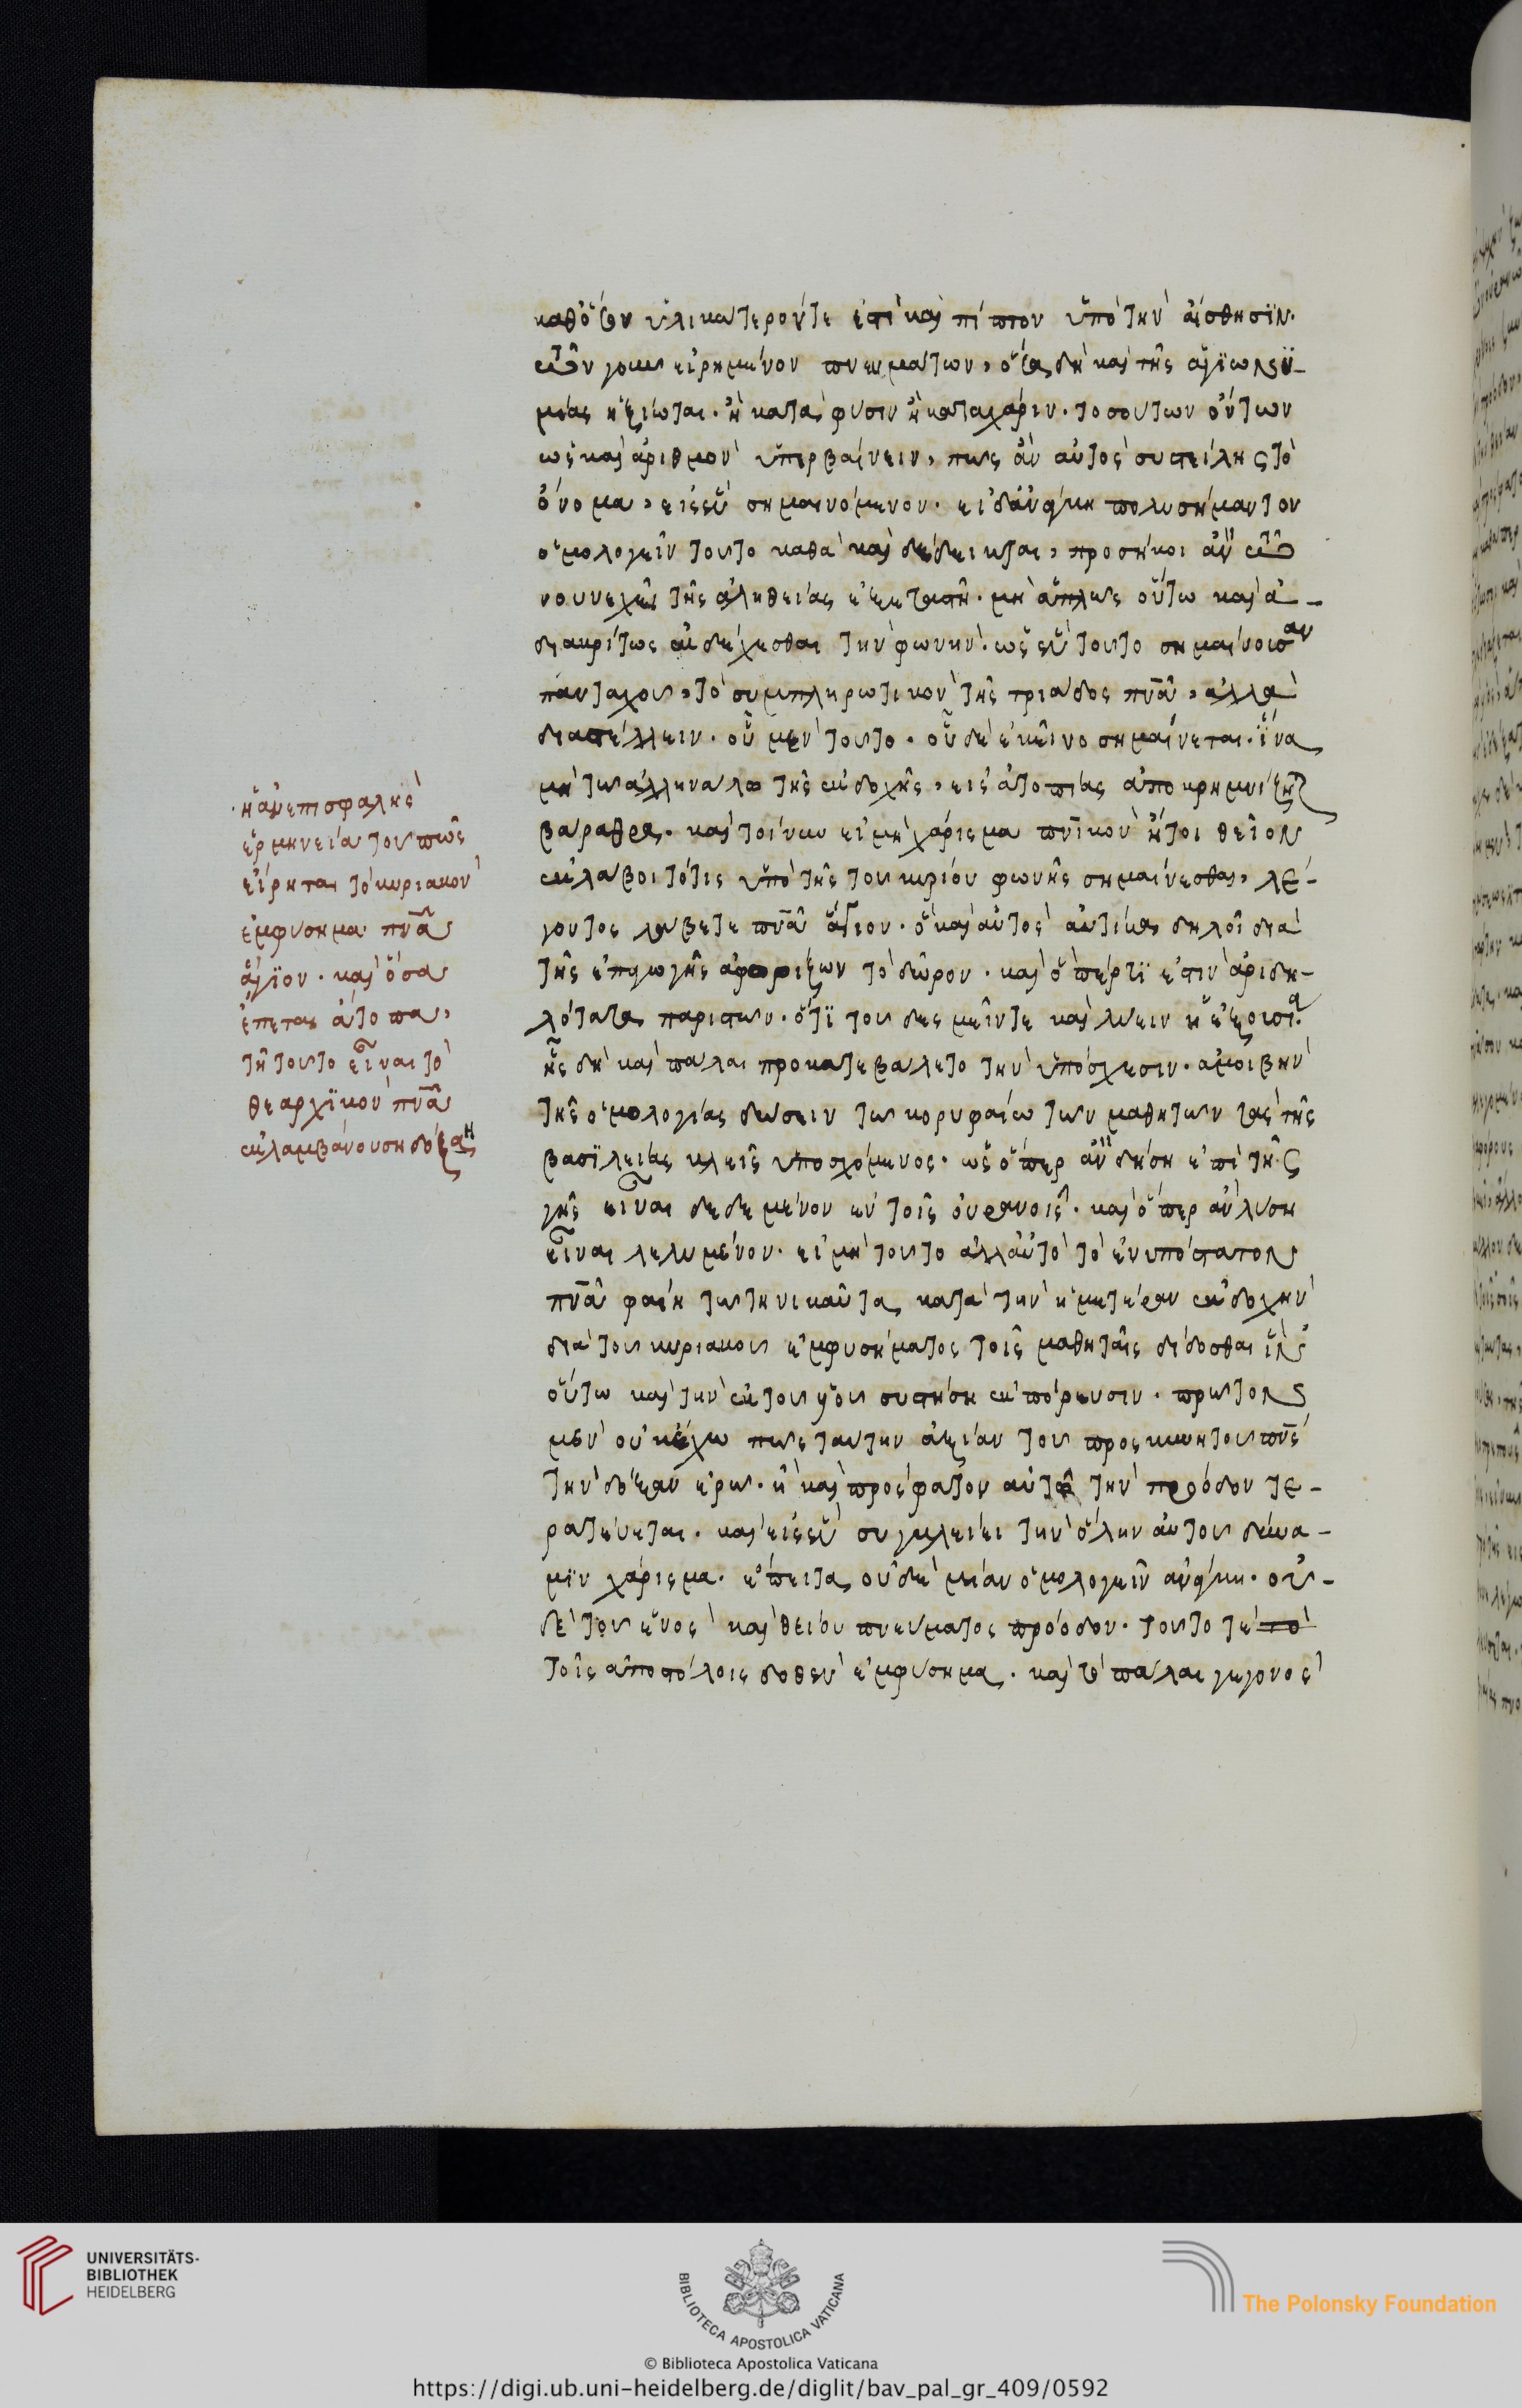 καθόσον ὑλικώτερόν τε ἐστὶ καὶ πίπτον ὑπὸ τὴν αἴσθησιν.
μείας ἠξίωται. ἢ κατὰ φύσιν ἢ κατὰ χάριν. τοσούτων ὄντων
ὡς καὶ ἀριθμὸν ὑπερβαίνειν, πῶς ἂν αὐτὸς συστείλης τὸ
ὄνομα, εἰς ἓν σημαινόμενον. εἰ δ' ἀνάγκη πολυσήμαντον
ὁμολογεῖν τοῦτο καθὰ καὶ δέδεικται, προσήκοι ἂν
νουνεχεῖ τῆς ἀληθείας ἐξεταστῇ. μὴ ἁπλῶς οὕτω καὶ ἀ-
διακρίτως ἐκδέχεσθαι τὴν φωνὴν. ὡς ἓν τοῦτο σημαίνουσαν
πανταχοῦ, τὸ συμπληρωτικὸν τῆς τριάδος πνᾶ, ἀλλὰ
διαστέλλειν. οὗ μὲν τοῦτο. οὗ δὲ ἐκεῖνο σημαίνεται. ἵνα
μὴ τῶ ἀλληνάλλω τῆς ἐκδοχῆς, εἰς ἀτοπίας ἀποκρημνίζη
βάραθρα. καὶ τοίνυν εἰ μὴ χάρισμα πνικὸν ἤτοι θεῖον
ἐκλάβοιτό τις ὑπὸ τῆς τοῦ κυρίου φωνῆς σημαίνεσθαι, λέ-
γοντος λάβετε πνᾶ ἅγιον. ὃ καὶ αὐτὸς αὐτίκα δηλοῖ διὰ
τῆς ἐπαγωγῆς ἀφορίζων τὸ δῶρον. καὶ ὅπέρ τί ἐστιν ἀριδη-
λότατα παριστῶν. ὅτι τοῦ δεσμεῖν τε καὶ λύειν ἡ ἐξουσία.
ἧς δὴ καὶ πάλαι προκατεβάλετο τὴν ὑπόσχεσιν. ἀμοιβὴν
τῆς ὁμολογίας δώσειν τῶ κορυφαίω τῶν μαθητῶν τὰς τῆς
βασιλείας κλεῖς ὑποσχόμενος. ὡς ὅπερ ἂν δήση ἐπὶ τῆς
γῆς εἶναι δεδεμένον ἐν τοῖς οὐρανοῖς. καὶ ὅπερ ἂν λύση
εἶναι λελυμένον. εἰ μὴ τοῦτο ἀλλ' αὐτὸ τὸ ἐνυπόστατον
πνᾶ φαίη τῶ τηνικαῦτα κατὰ τὴν ἡμετέραν ἐκδοχὴν
διὰ τοῦ κυριακοῦ ἐμφυσήματος τοῖς μαθηταῖς δίδοσθαι ἵν'
οὕτω καὶ τὴν ἐκ τοῦ υἱοῦ συστήση ἐκπόρευσιν. πρῶτον
μὲν οὐκ ἔχω πῶς ταύτην ἀξίαν τοῦ προσκυνητοῦ πνς
τὴν δόξαν ἐρῶ. ἢ καὶ πρόσφατον αὐτῶ τὴν πρόοδον τε-
ρατεύεται. καὶ εἰς ἓν συγκλείει τὴν ὅλην αὐτοῦ δύνα-
μιν χάρισμα. ἔπειτα οὐδὲ μίαν ὁμολογεῖν ἀνάγκη. οὐ-
δὲ τοῦ ἑνὸς καὶ θείου πνεύματος πρόοδον. τοῦτό τε τὸ
τοῖς ἀποστόλοις δοθὲν ἐμφύσημα. καὶ τὸ πάλαι γεγονὸς
ἢ ἀνεπισφαλὴς
ἑρμηνεία τοῦ πῶς
εἴρηται τὸ κυριακὸν
ἐμφύσημα πνᾶ
ἅγιον. καὶ ὅσα
ἕπεται ἄτοπα,
τῆ τοῦτο εἶναι τὸ
θεαρχικὸν πνᾶ
ἐκλαμβανούση δόξη
UNIVERSITÄTS-
BIBLIOTHEK
HEIDELBERG
BIBLIOTECA APOSTOLICA VATICANA
The Polonsky Foundation
© Biblioteca Apostolica Vaticana
https://digi.ub.uni-heidelberg.de/diglit/bav_pal_gr_409/0592